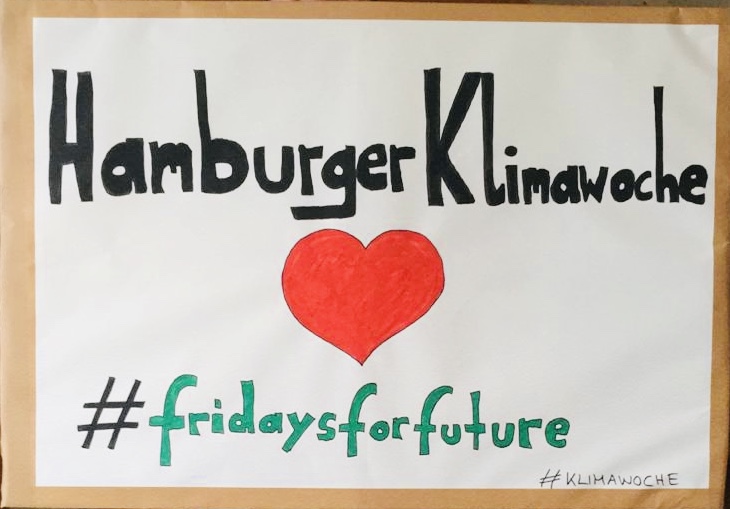 Hamburger Klimawoche
#fridaysforfuture
#KLIMAWOCHE